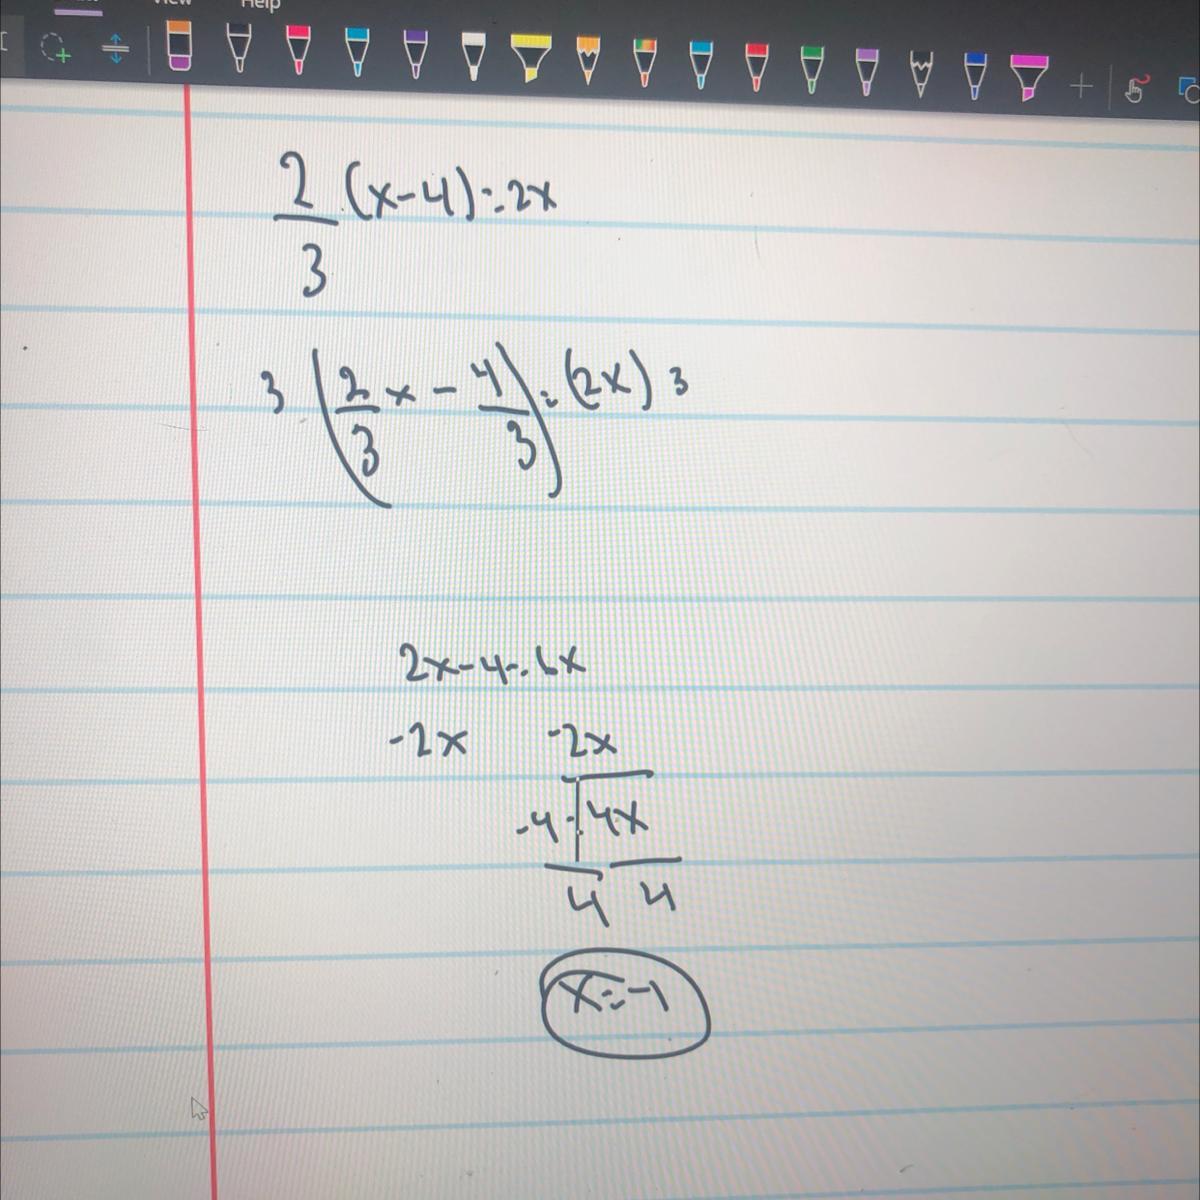 Help
2/3 (x-4)=2x
3 (2/3 x - 4/3) = (2x) 3
2x-4=6x
-2x -2x
-4=4x
4 4
x=-1